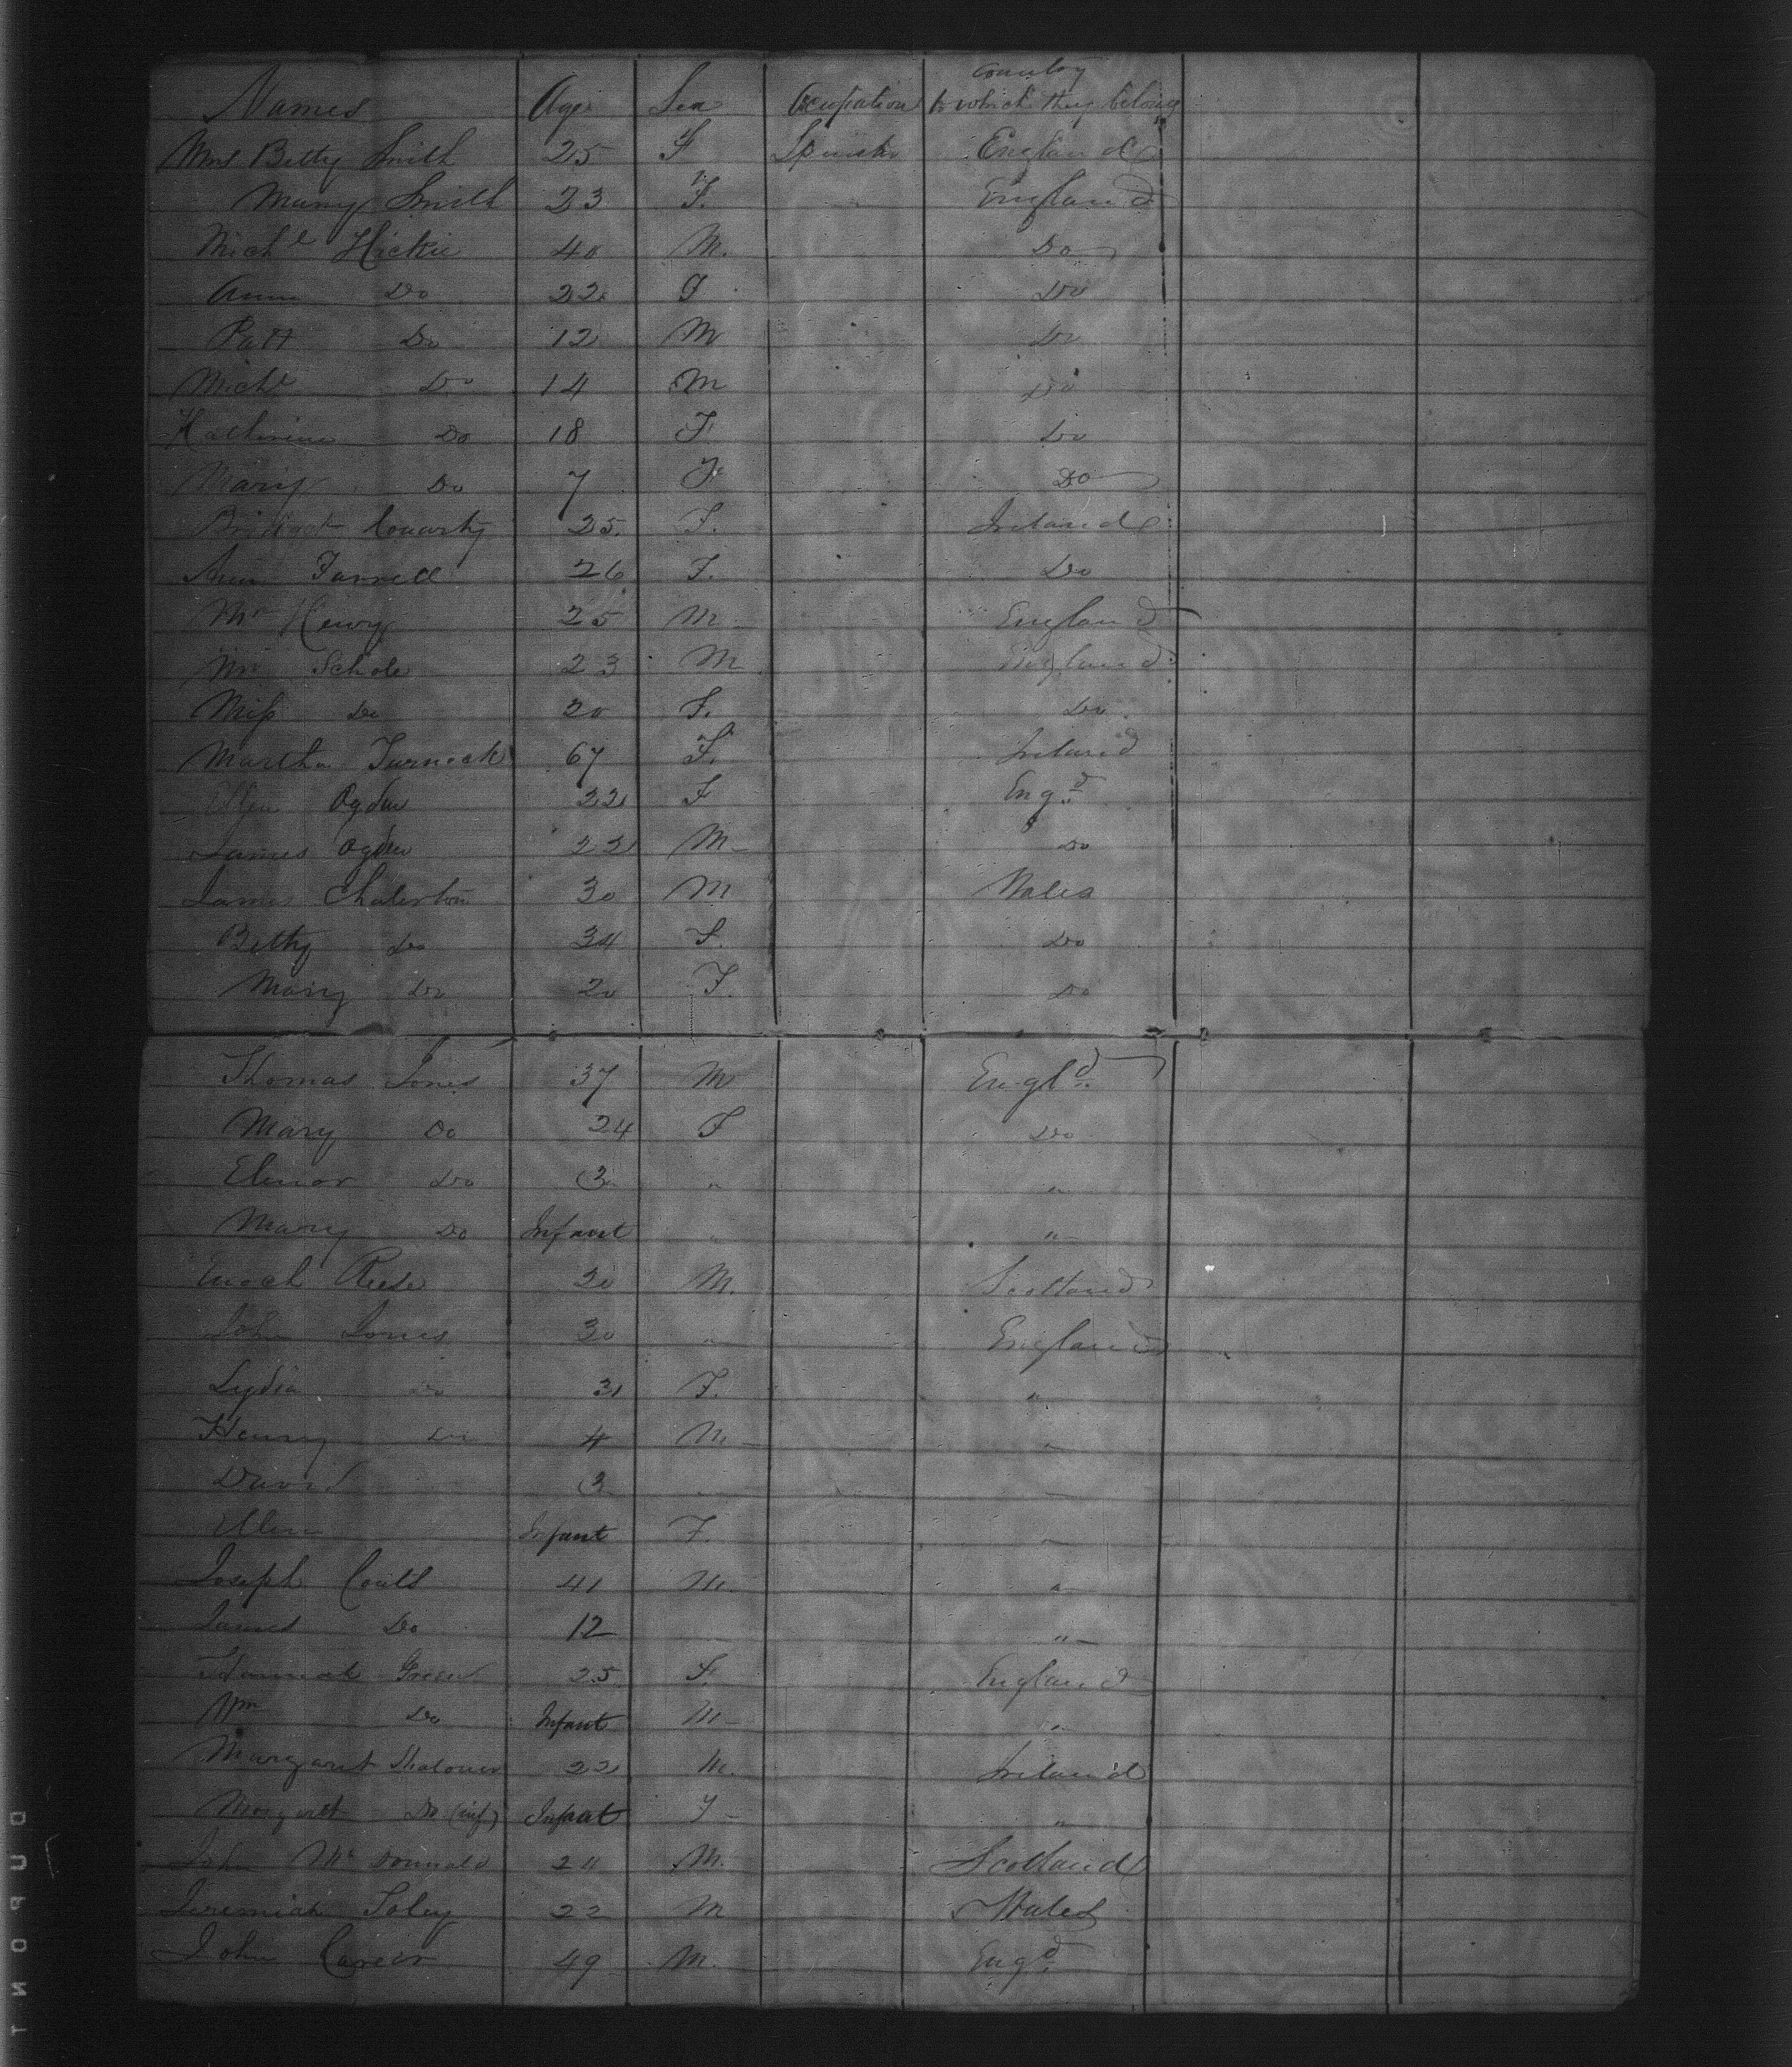 Names Age Sex Occupation Country to which they belong
Mrs Betty Smith 25 F Spinster England
Mary Smith 23 F. England
Michl Hickie 40 M. Do
Ann Do 22 F Do
Patt Do 12 M Do
Michl Do 14 M Do
Katherine Do 18 F Do
Mary Do 7 F Do
Bridget Conarty 25. F. Ireland
Ann Farrell 26 F. Do
Mr Henry 25 M England
Mr Schole 23 M England
Miss Do 20 F. Do
Martha Turnock 67 F. Ireland
Ellen Ogden 22 F Engd
James Ogden 22 M Do
James Chaterton 30 M Wales
Betty Do 34 F. Do
Mary Do 20 F. Do
Thomas Jones 37 M Engld
Mary Do 24 F Do
Elinor Do 3 " "
Mary Do Infant " "
Enoch Reese 30 M. Scotland
John Jones 30 " England
Lydia Do 31 F. "
Henry Do 4 M "
David 3 "
Ellen Infant F. "
Joseph Coults 41 M "
James Do 12 "
Hannah Green 25 F. England
Wm Do Infant M "
Margaret 22 M. Ireland
Margarett Do (inf) Infant F "
John McDonnald 24 M. Scotland
Jeremiah Foley 22 M Wales
John 49 M. Engd
DUPONT